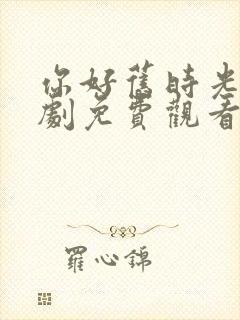 你好舊時光
劇免費觀看
羅心錦